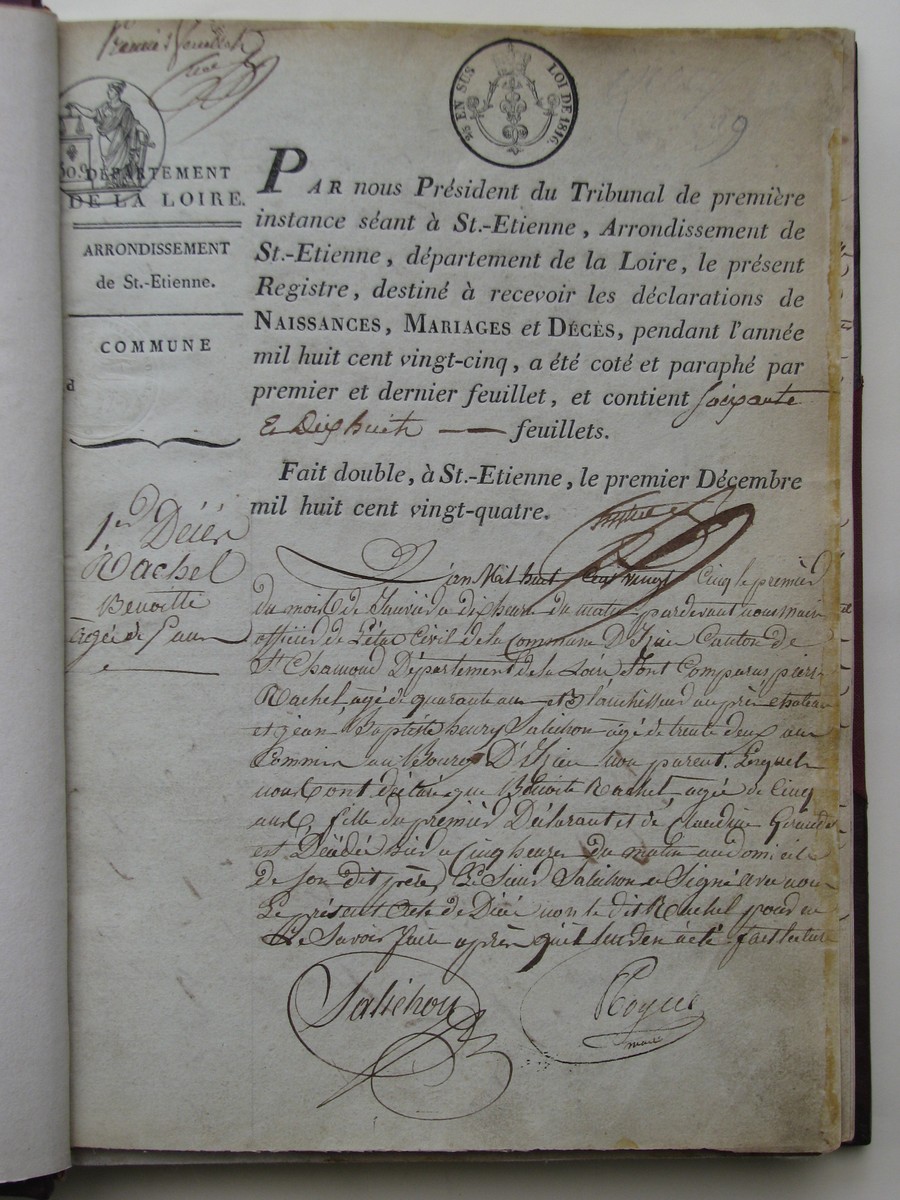 Premier feuillet
25 EN SUS LOI DE 1816.
DÉPARTEMENT
DE LA LOIRE.
ARRONDISSEMENT
de St.-Etienne.
COMMUNE
d
PAR nous Président du Tribunal de première
instance séant à St.-Etienne, Arrondissement de
St.-Etienne, département de la Loire, le présent
Registre, destiné à recevoir les déclarations de
NAISSANCES, MARIAGES et DÉCÈS, pendant l'année
mil huit cent vingt-cinq, a été coté et paraphé par
premier et dernier feuillet, et contient soixante
et Dix huit — feuillets.
Fait double, à St.-Etienne, le premier Décembre
mil huit cent vingt-quatre.
1er Décès
Rachel
Benoitte
agée de 5 ans
L'an Mil huit Cent vingt Cinq le premier
du mois de Janvier a dix heures du matin pardevant nous maire
officier de L'état Civil de la Commune D'Izieu Canton de
St Chamond Département de la Loire Sont Comparus pierre
Rachel agé de quarante ans Blanchisseur au près chateau
et jean Baptiste henry Saliehon agé de trente deux ans
Commis au Bourg D'Izieu non parent. Lesquels
nous ont déclaré que Benoite Rachel agée de Cinq
ans, fille du premier Déclarant et de Claudine
est Décédée hier a Cinq heures du matin au domicile
de son dit père, Le Sieur Saliehon a Signé avec nous
Le présent Acte de Décès non le dit Rachel pour ne
Le Savoir faire après qu'il leur en a été fait lecture
Saliehon
Royer
maire